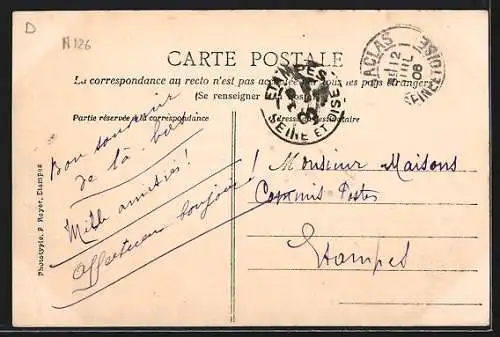 D
A126
CARTE POSTALE
La correspondance au recto n'est pas acceptée par tous les pays étrangers
(Se renseigner à la Poste)
Partie réservée à la correspondance
Adresse du destinataire
ETAMPES
SEINE ET OISE
SACLAS
12
08
SEINE ET OISE
Bon souvenir
de là-bas
Mille amitiés!
Affectueux bonjour!
Monsieur Maisons
Commis Postes
Etampes
Phototypie. P. Royer, Etampes